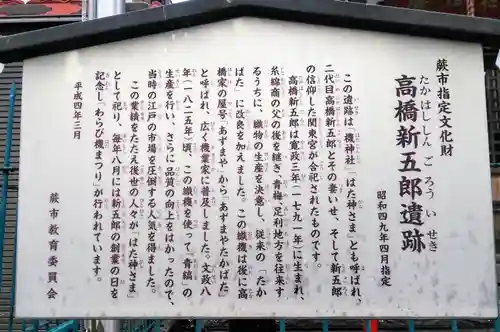 蕨市指定文化財
たかはししんごろういせき
高橋新五郎遺跡
昭和四九年四月指定
この遺跡は「機神社」「はた神さま」とも呼ばれ、
二代目高橋新五郎とその妻いせ、そして新五郎
の信仰した関東宮が合祀されたものです。
高橋新五郎は寛政三年（一七九一年）に生まれ、
糸綿商の父の後を継ぎ、青梅、足利地方を往来す
るうちに、織物の生産を決意し、従来の「たか
ばた」に改良を加えました。この織機は後に高
橋家の屋号「あずまや」から「あずまやたかばた」
と呼ばれ、広く機業家に普及しました。文政八
年（一八二五年）頃、この織機を使って「青縞」の
生産を行い、さらに品質の向上をはかったので、
当時の江戸の市場を圧倒する人気を得ました。
この業績をたたえ後世の人々が「はた神さま」
として祀り、毎年八月には新五郎の創業の日を
記念し「わらび機まつり」が行われています。
平成四年三月
蕨市教育委員会